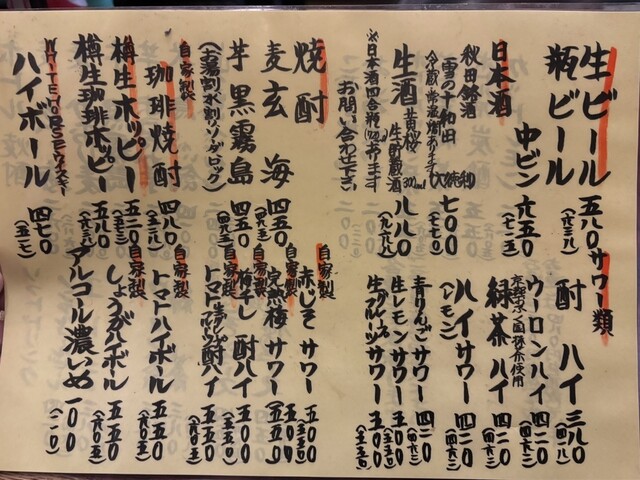 生ビール 五八〇(六三八)
瓶ビール 中ビン 六五〇(七一五)
日本酒
秋田銘酒
「雪の十和田」 七〇〇(七七〇)
冷蔵・常温・燗あります(大徳利)
生酒 黄桜 生貯蔵酒 300ml 八八〇(九六八)
※日本酒四合瓶(720ml)あります
お問い合わせ下さい
焼酎
麦 玄海 四五〇(四九五)
芋 黒霧島 四五〇(四九五)
(お湯割 水割 ソーダ ロック)
自家製
珈琲焼酎 四八〇(五二八)
樽生ホッピー 五二〇(五七二)
樽生珈琲ホッピー 五八〇(六三八)
WHITEHORSEウイスキー
ハイボール 四七〇(五一七)
サワー類
酎ハイ 三八〇(四一八)
ウーロンハイ 四二〇(四六二)
緑茶ハイ 四二〇(四六二)
ハイサワー(レモン) 四二〇(四六二)
青りんごサワー 四二〇(四六二)
生レモンサワー 五〇〇(五五〇)
生グレープフルーツサワー 五〇〇(五五〇)
自家製
赤しそサワー 五〇〇(五五〇)
自家製
完熟梅サワー 五〇〇(五五〇)
自家製
梅干し酎ハイ 五〇〇(五五〇)
自家製
トマト酎ハイ 五五〇(六〇五)
自家製
トマトハイボール 五五〇(六〇五)
自家製
しょうがハイボール 五五〇(六〇五)
アルコール濃いめ 一〇〇(一一〇)